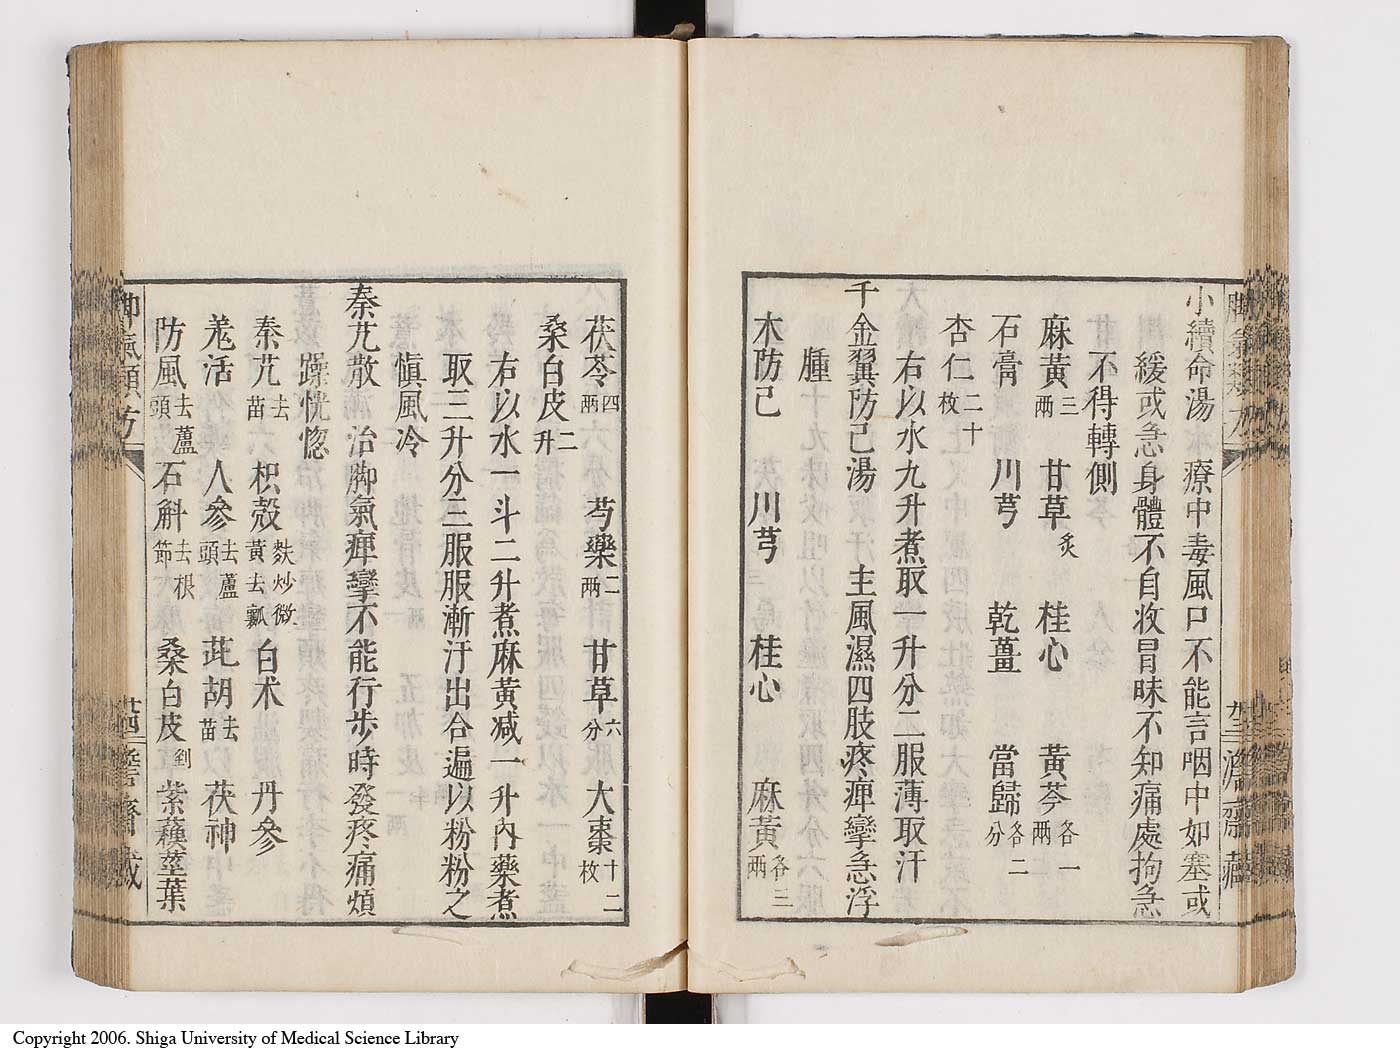 小續命湯　療中毒風口不能言咽中如塞或
緩或急身體不自收冒昧不知痛處拘急
不得轉側
麻黃三兩　甘草炙　桂心　黃芩各一兩
石膏　川芎　乾薑　當歸各二分
杏仁二十枚
右以水九升煮取一升分二服薄取汗
千金翼防己湯　主風濕四肢疼痺攣急浮
腫
木防己　川芎　桂心　麻黃各三兩
茯苓四兩　芍藥二兩　甘草六分　大棗十二枚
桑白皮二升
右以水一斗二升煮麻黃减一升內藥煮
取三升分三服服漸汗出合遍以粉粉之
愼風冷
秦艽散　治脚氣痺攣不能行步時發疼痛煩
躁恍惚
秦艽去苗　枳殼麩炒微黃去瓤　白术　丹參
羌活　人參去蘆頭　茈胡去苗　茯神
防風去蘆頭　石斛去根節　桑白皮剉　紫蘇莖葉
脚氣類方
Copyright 2006. Shiga University of Medical Science Library